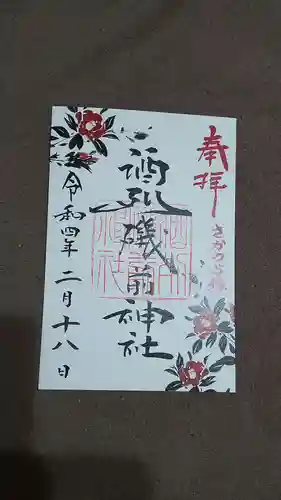 奉拝
さかつらさん
酒列
磯前
神社
令和四年二月十八日